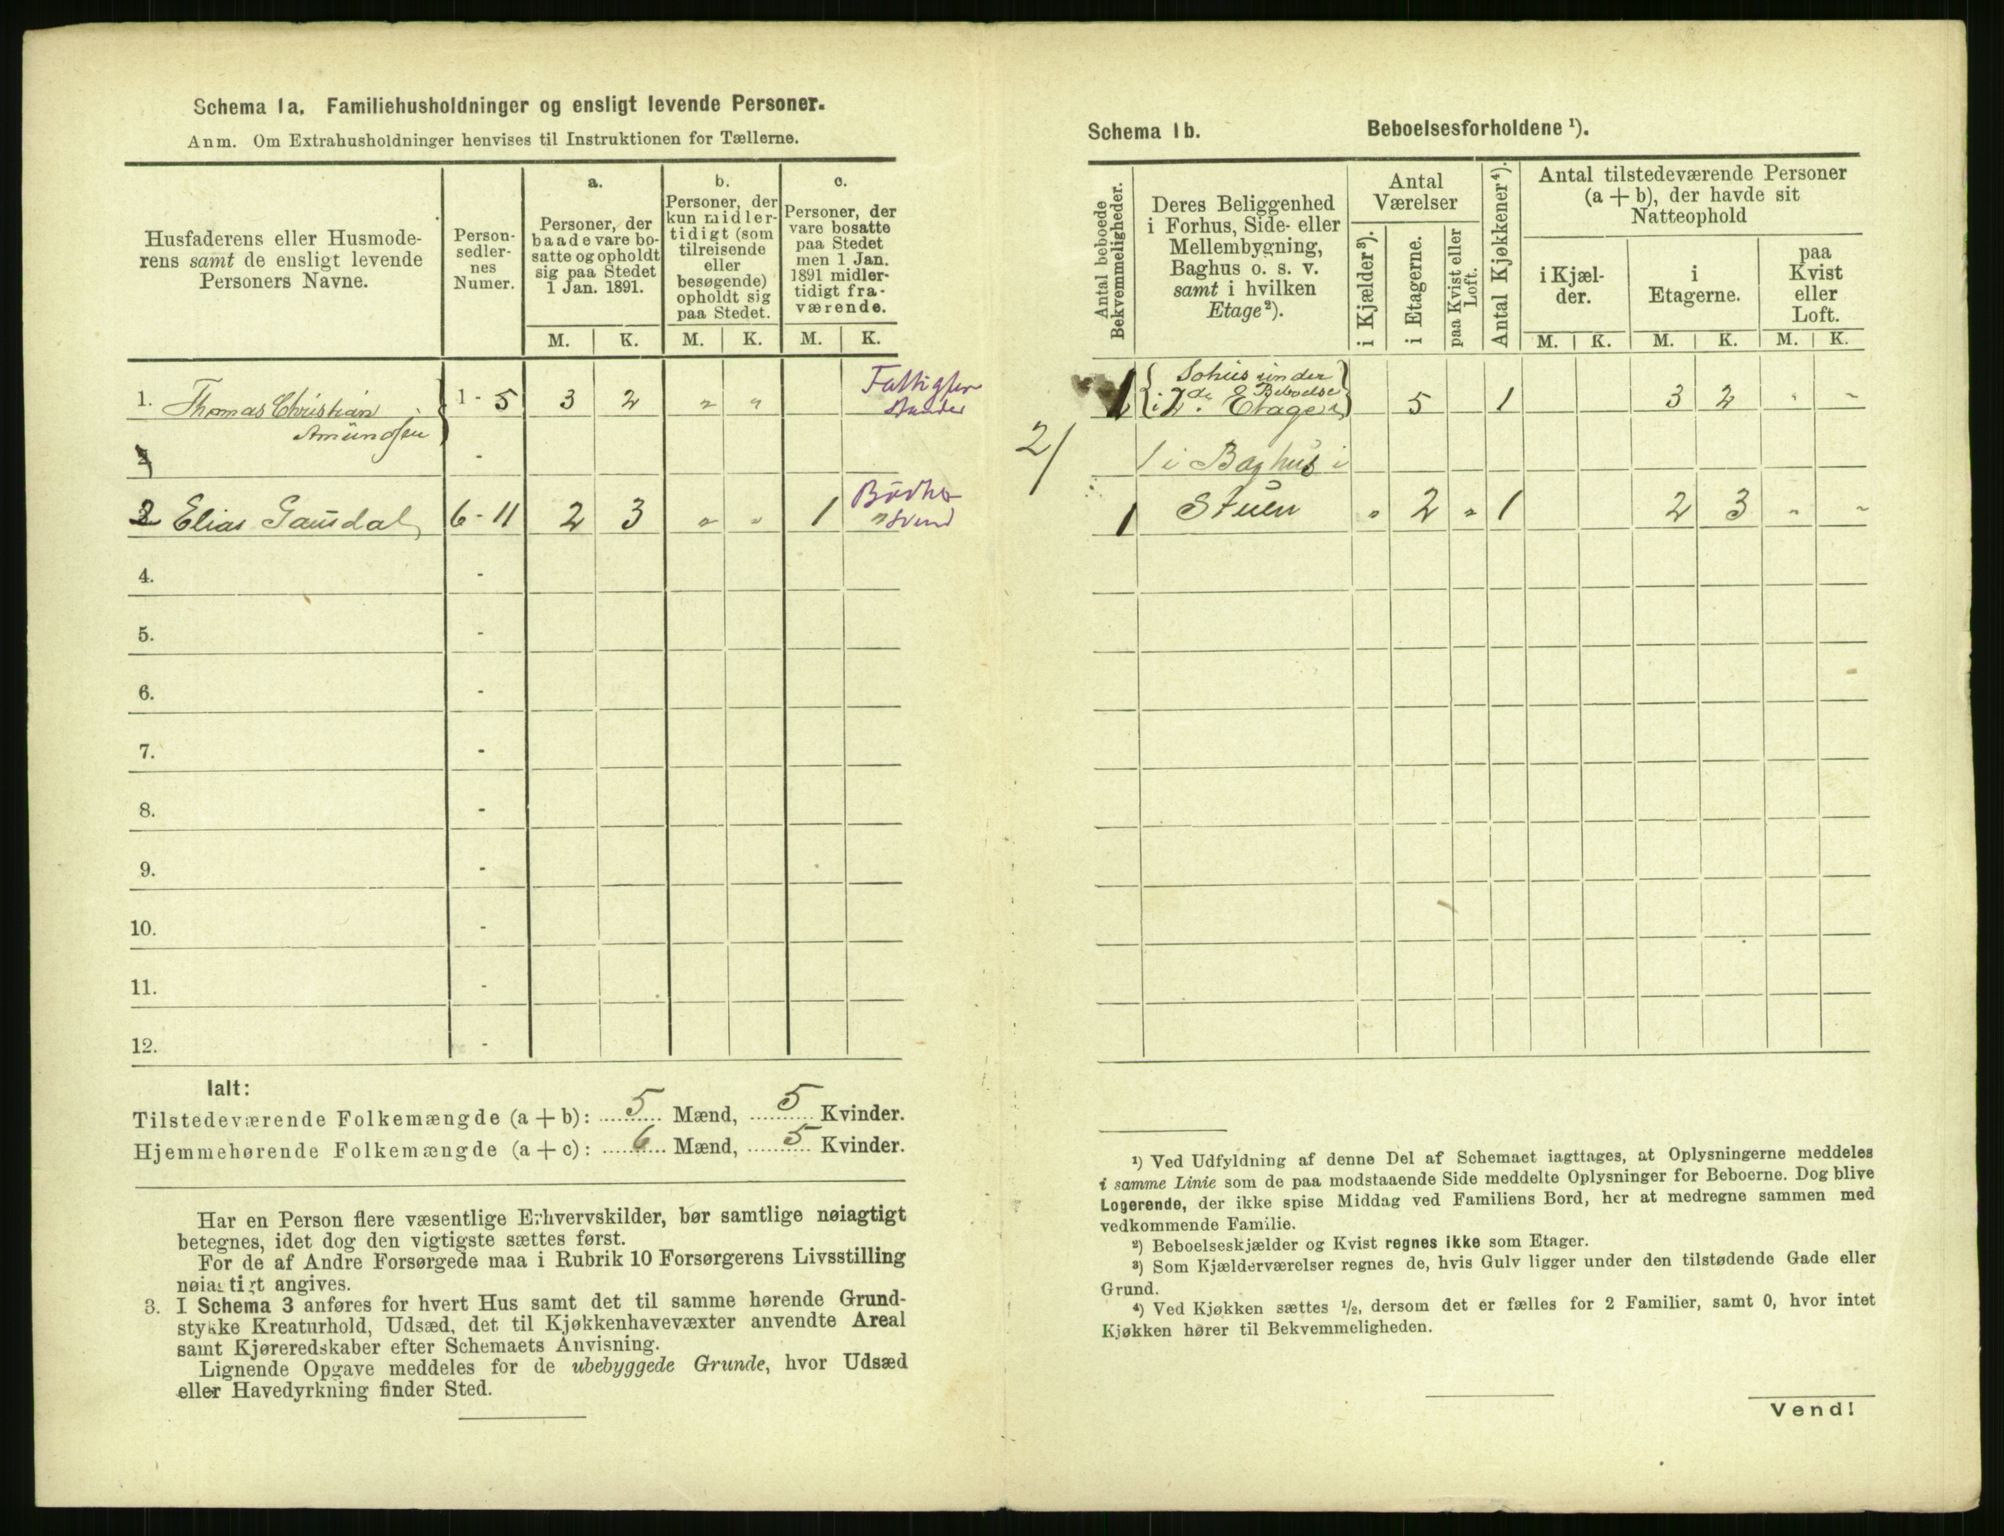 Schema 1a. Familiehusholdninger og ensligt levende Personer.
Anm. Om Extrahusholdninger henvises til Instruktionen for Tællerne.
Husfaderens eller Husmode-
rens samt de ensligt levende
Personers Navne.
Person-
sedler-
nes
Numer.
a.
Personer, der
baade vare bo-
satte og opholdt
sig paa Stedet
1 Jan. 1891.
b.
Personer, der
kun midler-
tidigt (som
tilreisende
eller
besøgende)
opholdt sig
paa Stedet.
c.
Personer, der
vare bosatte
paa Stedet
men 1 Jan.
1891 midler-
tidigt fra-
værende.
M. K. M. K. M. K.
1. Thomas Christian
Amundsen
1 - 5 3 2 " " Fattigfor
stander
2
-
2 Elias Gausdal 6 - 11 2 3 " " 1 Bødker
svend
4. -
5. -
6. -
7. -
8. -
9. -
10. -
11. -
12. -
Ialt:
Tilstedeværende Folkemængde (a + b): 5 Mænd, 5 Kvinder.
Hjemmehørende Folkemængde (a + c): 6 Mænd, 5 Kvinder.
Har en Person flere væsentlige Erhvervskilder, bør samtlige nøiagtigt
betegnes, idet dog den vigtigste sættes først.
For de af Andre Forsørgede maa i Rubrik 10 Forsørgerens Livsstilling
nøiagtigt angives.
3. I Schema 3 anføres for hvert Hus samt det til samme hørende Grund-
stykke Kreaturhold, Udsæd, det til Kjøkkenhavevæxter anvendte Areal
samt Kjøreredskaber efter Schemaets Anvisning.
Lignende Opgave meddeles for de ubebyggede Grunde, hvor Udsæd
eller Havedyrkning finder Sted.
Schema 1b. Beboelsesforholdene ¹).
Antal beboede
Bekvemmeligheder.
Deres Beliggenhed
i Forhus, Side- eller
Mellembygning,
Baghus o. s. v.
samt i hvilken
Etage ²).
Antal
Værelser
i Kjælder ³).
i Etagerne.
paa Kvist eller
Loft.
Antal Kjøkkener ⁴).
Antal tilstedeværende Personer
(a + b), der havde sit
Natteophold
i Kjæl-
der.
i
Etagerne.
paa
Kvist
eller
Loft.
M. K. M. K. M. K.
1 under
i 2de Beboelse
Etager 5 1 3 2 " "
2/
1 i Baghus i
1 Stuen " 2 " 1 2 3 " "
¹) Ved Udfyldning af denne Del af Schemaet iagttages, at Oplysningerne meddeles
i samme Linie som de paa modstaaende Side meddelte Oplysninger for Beboerne. Dog blive
Logerende, der ikke spise Middag ved Familiens Bord, her at medregne sammen med
vedkommende Familie.
²) Beboelseskjælder og Kvist regnes ikke som Etager.
³) Som Kjælderværelser regnes de, hvis Gulv ligger under den tilstødende Gade eller
Grund.
⁴) Ved Kjøkken sættes ½, dersom det er fælles for 2 Familier, samt 0, hvor intet
Kjøkken hører til Bekvemmeligheden.
Vend!